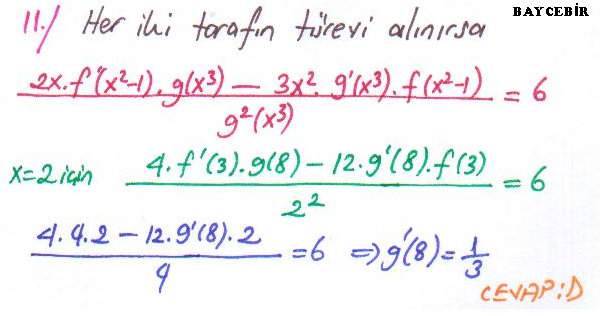 BAYCEBİR
11./ Her iki tarafın türevi alınırsa
2x.f'(x²-1).g(x³) — 3x².g'(x³).f(x²-1) / g²(x³) = 6
x=2 için 4.f'(3).g(8) — 12.g'(8).f(3) / 2² = 6
4.4.2 — 12.g'(8).2 / 4 = 6 ⇒ g'(8) = 1/3
CEVAP:D